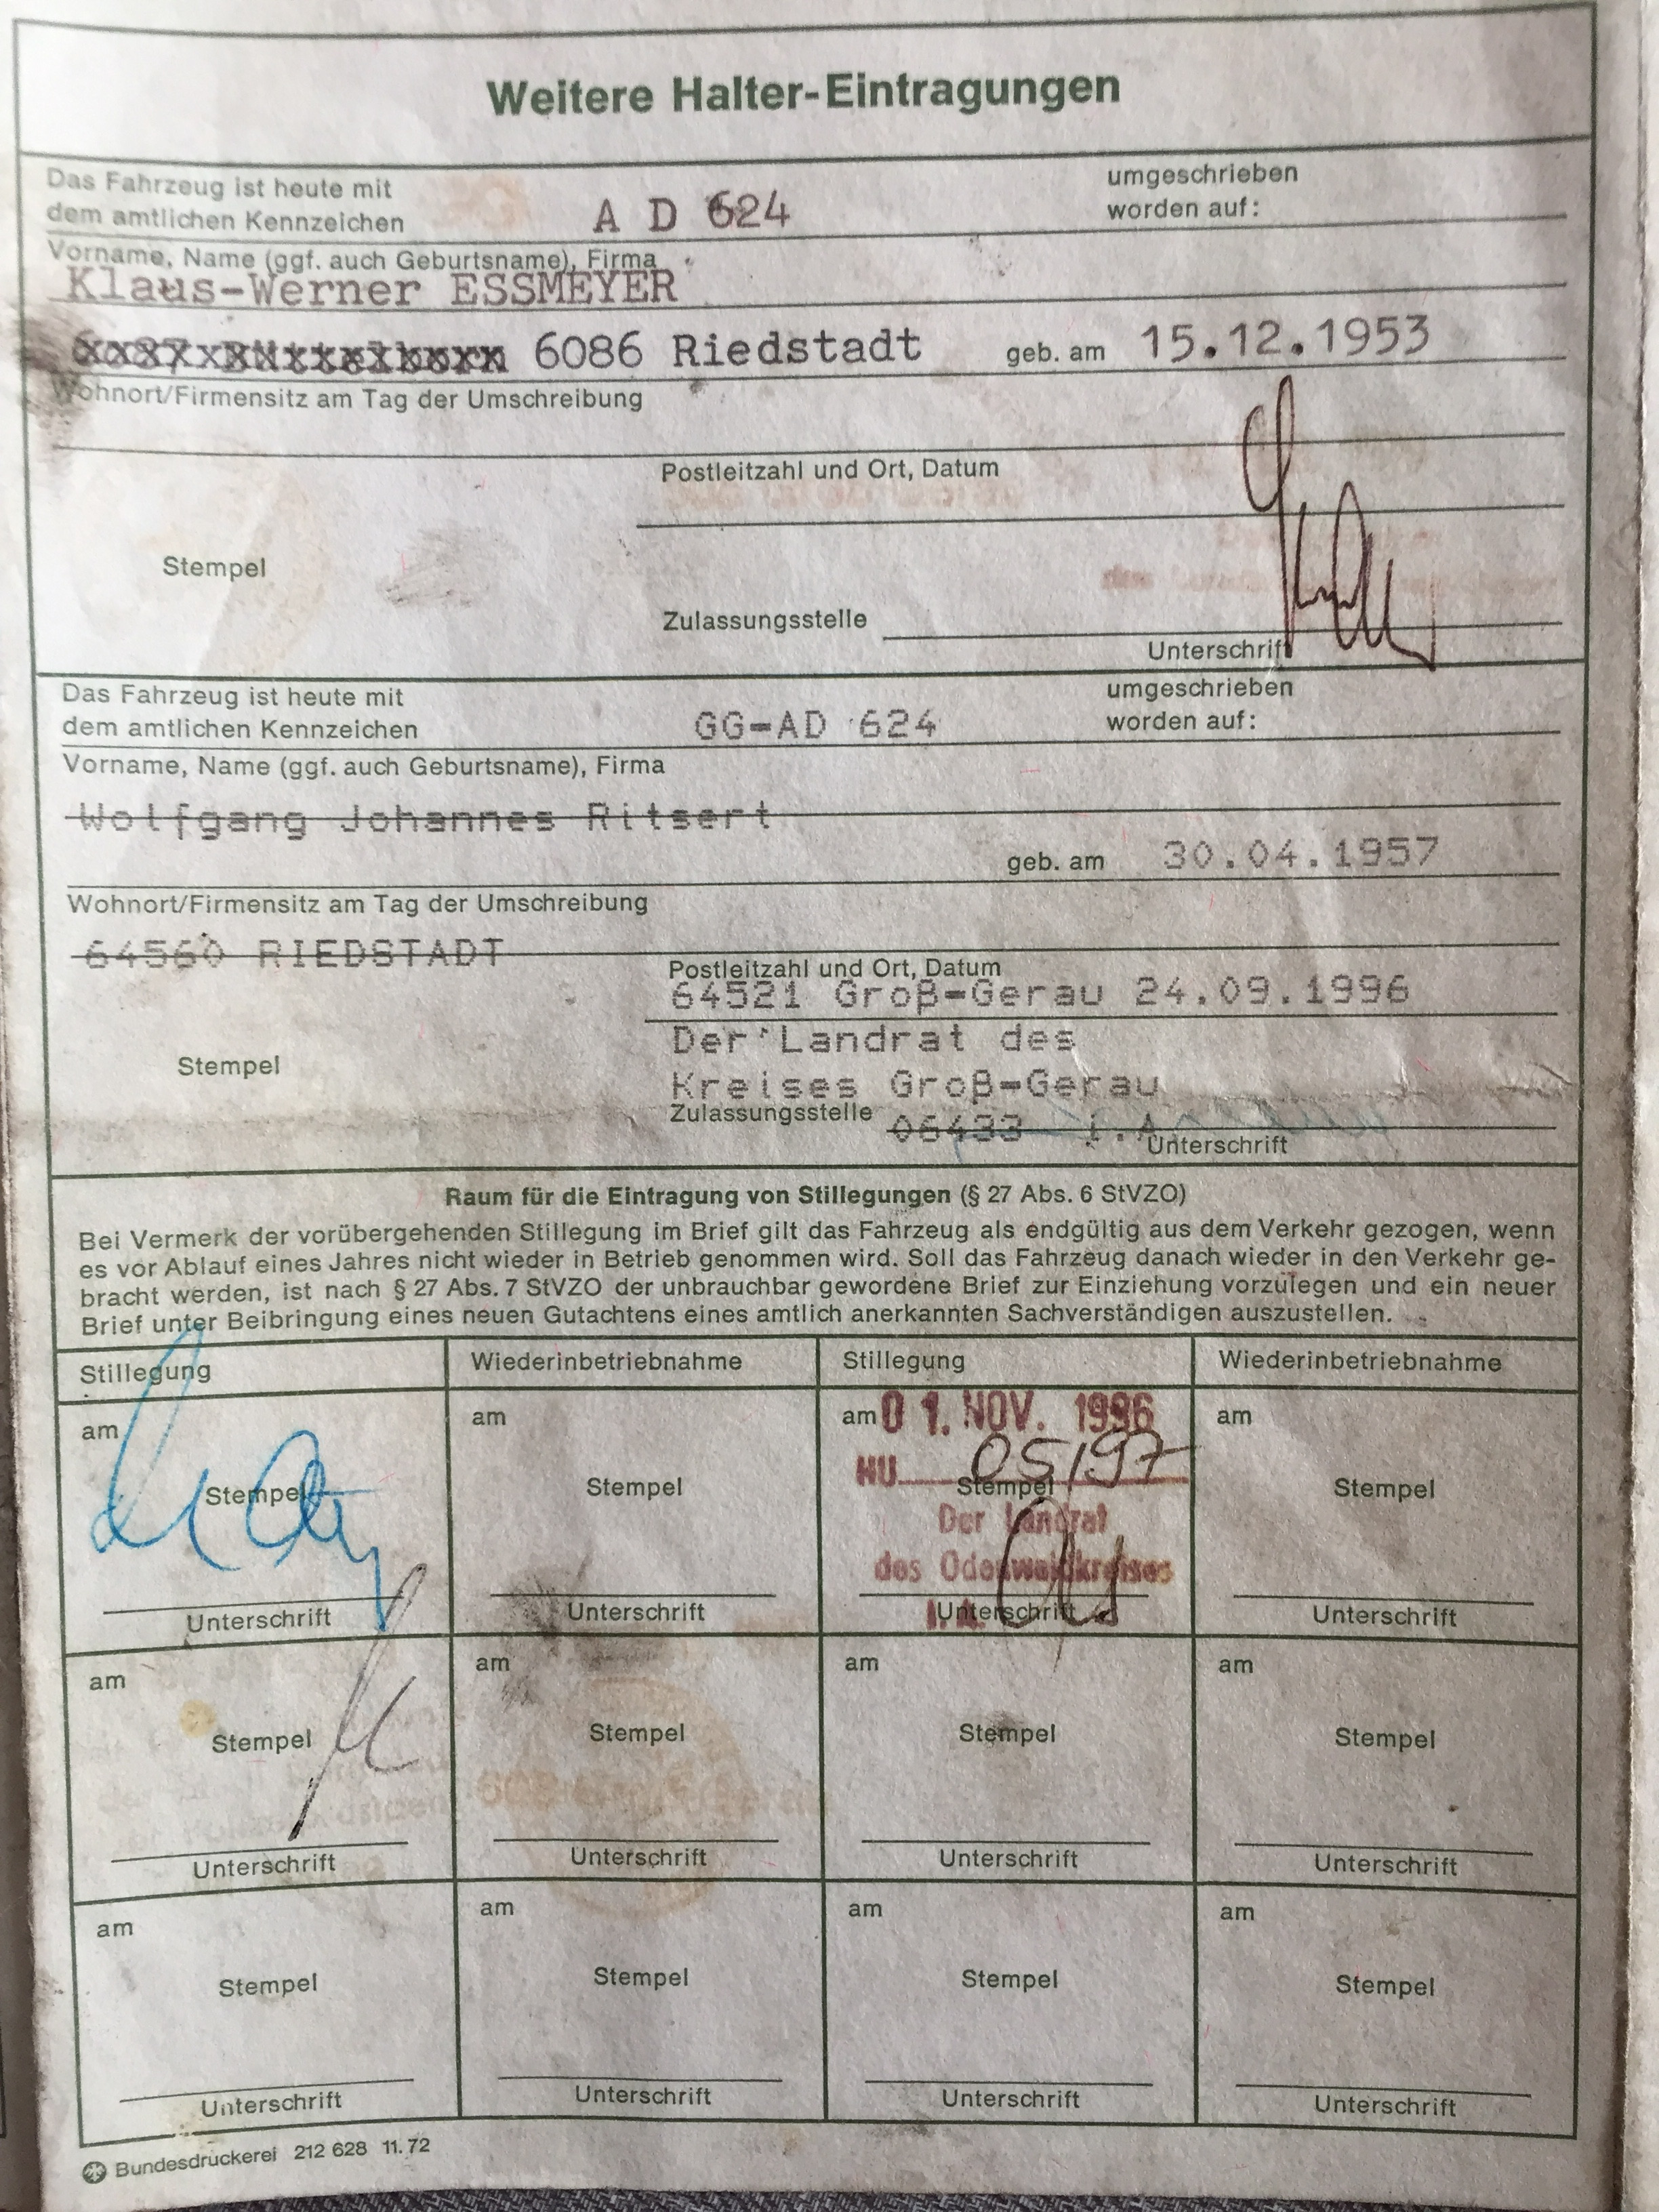 Weitere Halter-Eintragungen
Das Fahrzeug ist heute mit
dem amtlichen Kennzeichen A D 624
umgeschrieben
worden auf:
Vorname, Name (ggf. auch Geburtsname), Firma
Klaus-Werner ESSMEYER
6086 Riedstadt geb. am 15.12.1953
Wohnort/Firmensitz am Tag der Umschreibung
Postleitzahl und Ort, Datum
Stempel
Zulassungsstelle
Unterschrift
Das Fahrzeug ist heute mit
dem amtlichen Kennzeichen GG-AD 624
umgeschrieben
worden auf:
Vorname, Name (ggf. auch Geburtsname), Firma
Wolfgang Johannes Ritsert
geb. am 30.04.1957
Wohnort/Firmensitz am Tag der Umschreibung
64560 RIEDSTADT
Postleitzahl und Ort, Datum
64521 Groß-Gerau 24.09.1996
Der Landrat des
Stempel
Kreises Groß-Gerau
Zulassungsstelle 06433 i.A
Unterschrift
Raum für die Eintragung von Stillegungen (§ 27 Abs. 6 StVZO)
Bei Vermerk der vorübergehenden Stillegung im Brief gilt das Fahrzeug als endgültig aus dem Verkehr gezogen, wenn
es vor Ablauf eines Jahres nicht wieder in Betrieb genommen wird. Soll das Fahrzeug danach wieder in den Verkehr ge-
bracht werden, ist nach § 27 Abs. 7 StVZO der unbrauchbar gewordene Brief zur Einziehung vorzulegen und ein neuer
Brief unter Beibringung eines neuen Gutachtens eines amtlich anerkannten Sachverständigen auszustellen.
Stillegung Wiederinbetriebnahme Stillegung Wiederinbetriebnahme
am am am 01. NOV. 1996 am
HU 05/97
Stempel Stempel Stempel Stempel
Der Landrat
des Odenwaldkreises
I. A.
Unterschrift Unterschrift Unterschrift Unterschrift
am am am am
Stempel Stempel Stempel Stempel
Unterschrift Unterschrift Unterschrift Unterschrift
am am am am
Stempel Stempel Stempel Stempel
Unterschrift Unterschrift Unterschrift Unterschrift
Bundesdruckerei 212 628 11.72